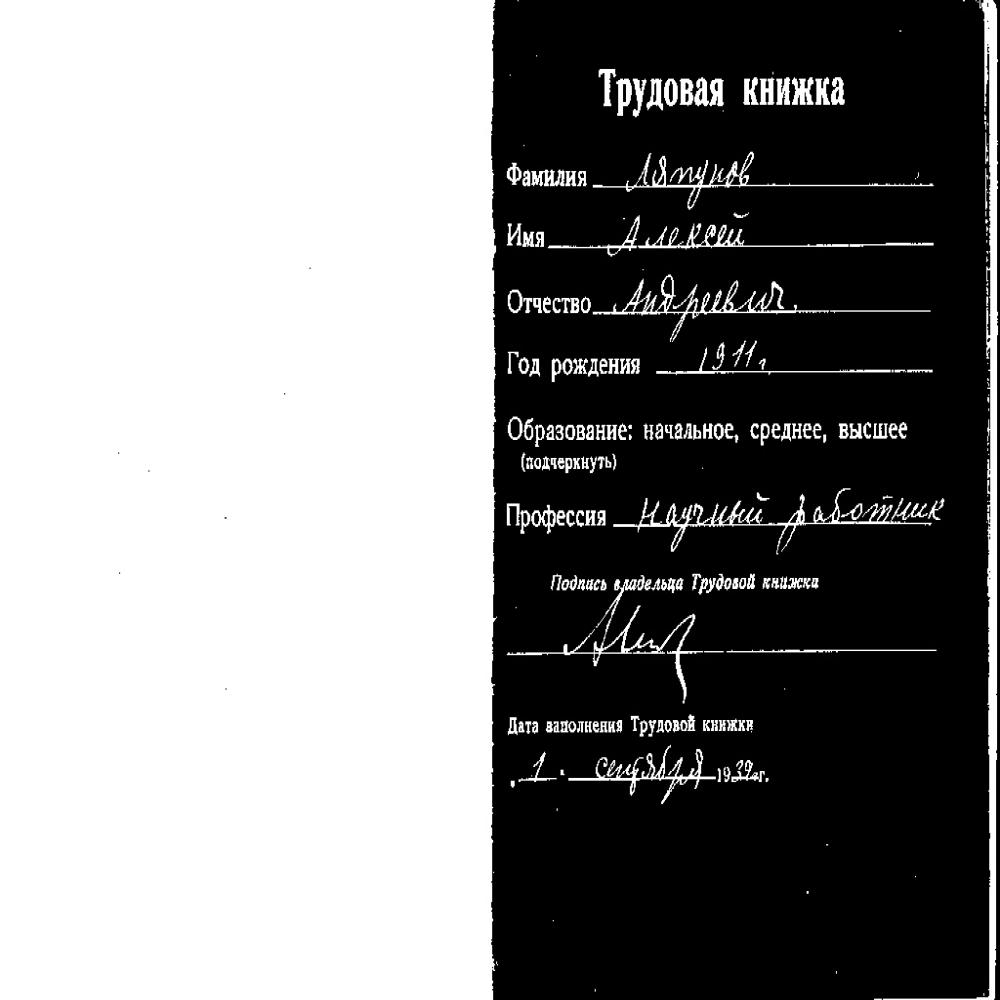 Трудовая книжка
Фамилия Ляпунов
Имя Алексей
Отчество Андреевич.
Год рождения 1911 г
Образование: начальное, среднее, высшее
(подчеркнуть)
Профессия Научный работник
Подпись владельца Трудовой книжки
Дата заполнения Трудовой книжки
1 . сентября 1939 г.